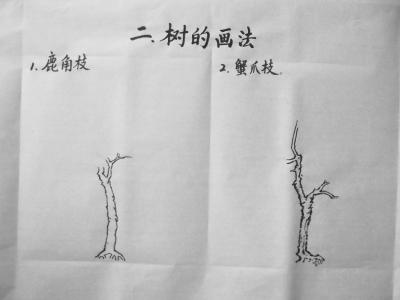 二.树的画法
1.鹿角枝
2.蟹爪枝.